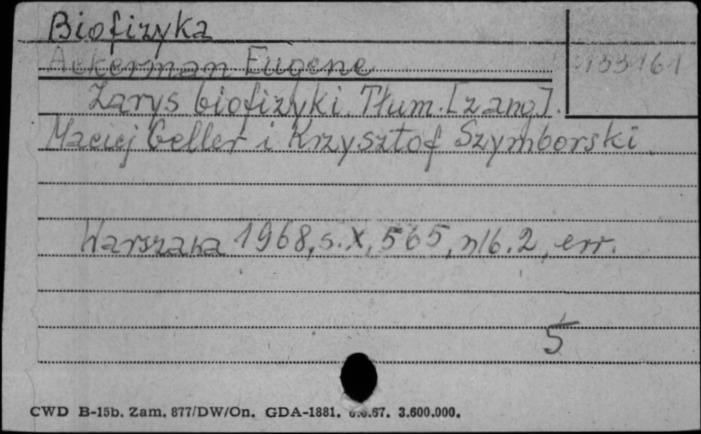 Biofizyka
Ackerman Eugene
133161
Zarys biofizyki. Tłum. [z ang].
Maciej Geller i Krzysztof Szymborski.
Warszawa 1968, s. X, 565, nlb. 2, err.
5
CWD B-15b. Zam. 877/DW/On. GDA-1881. 6.6.67. 3.600.000.